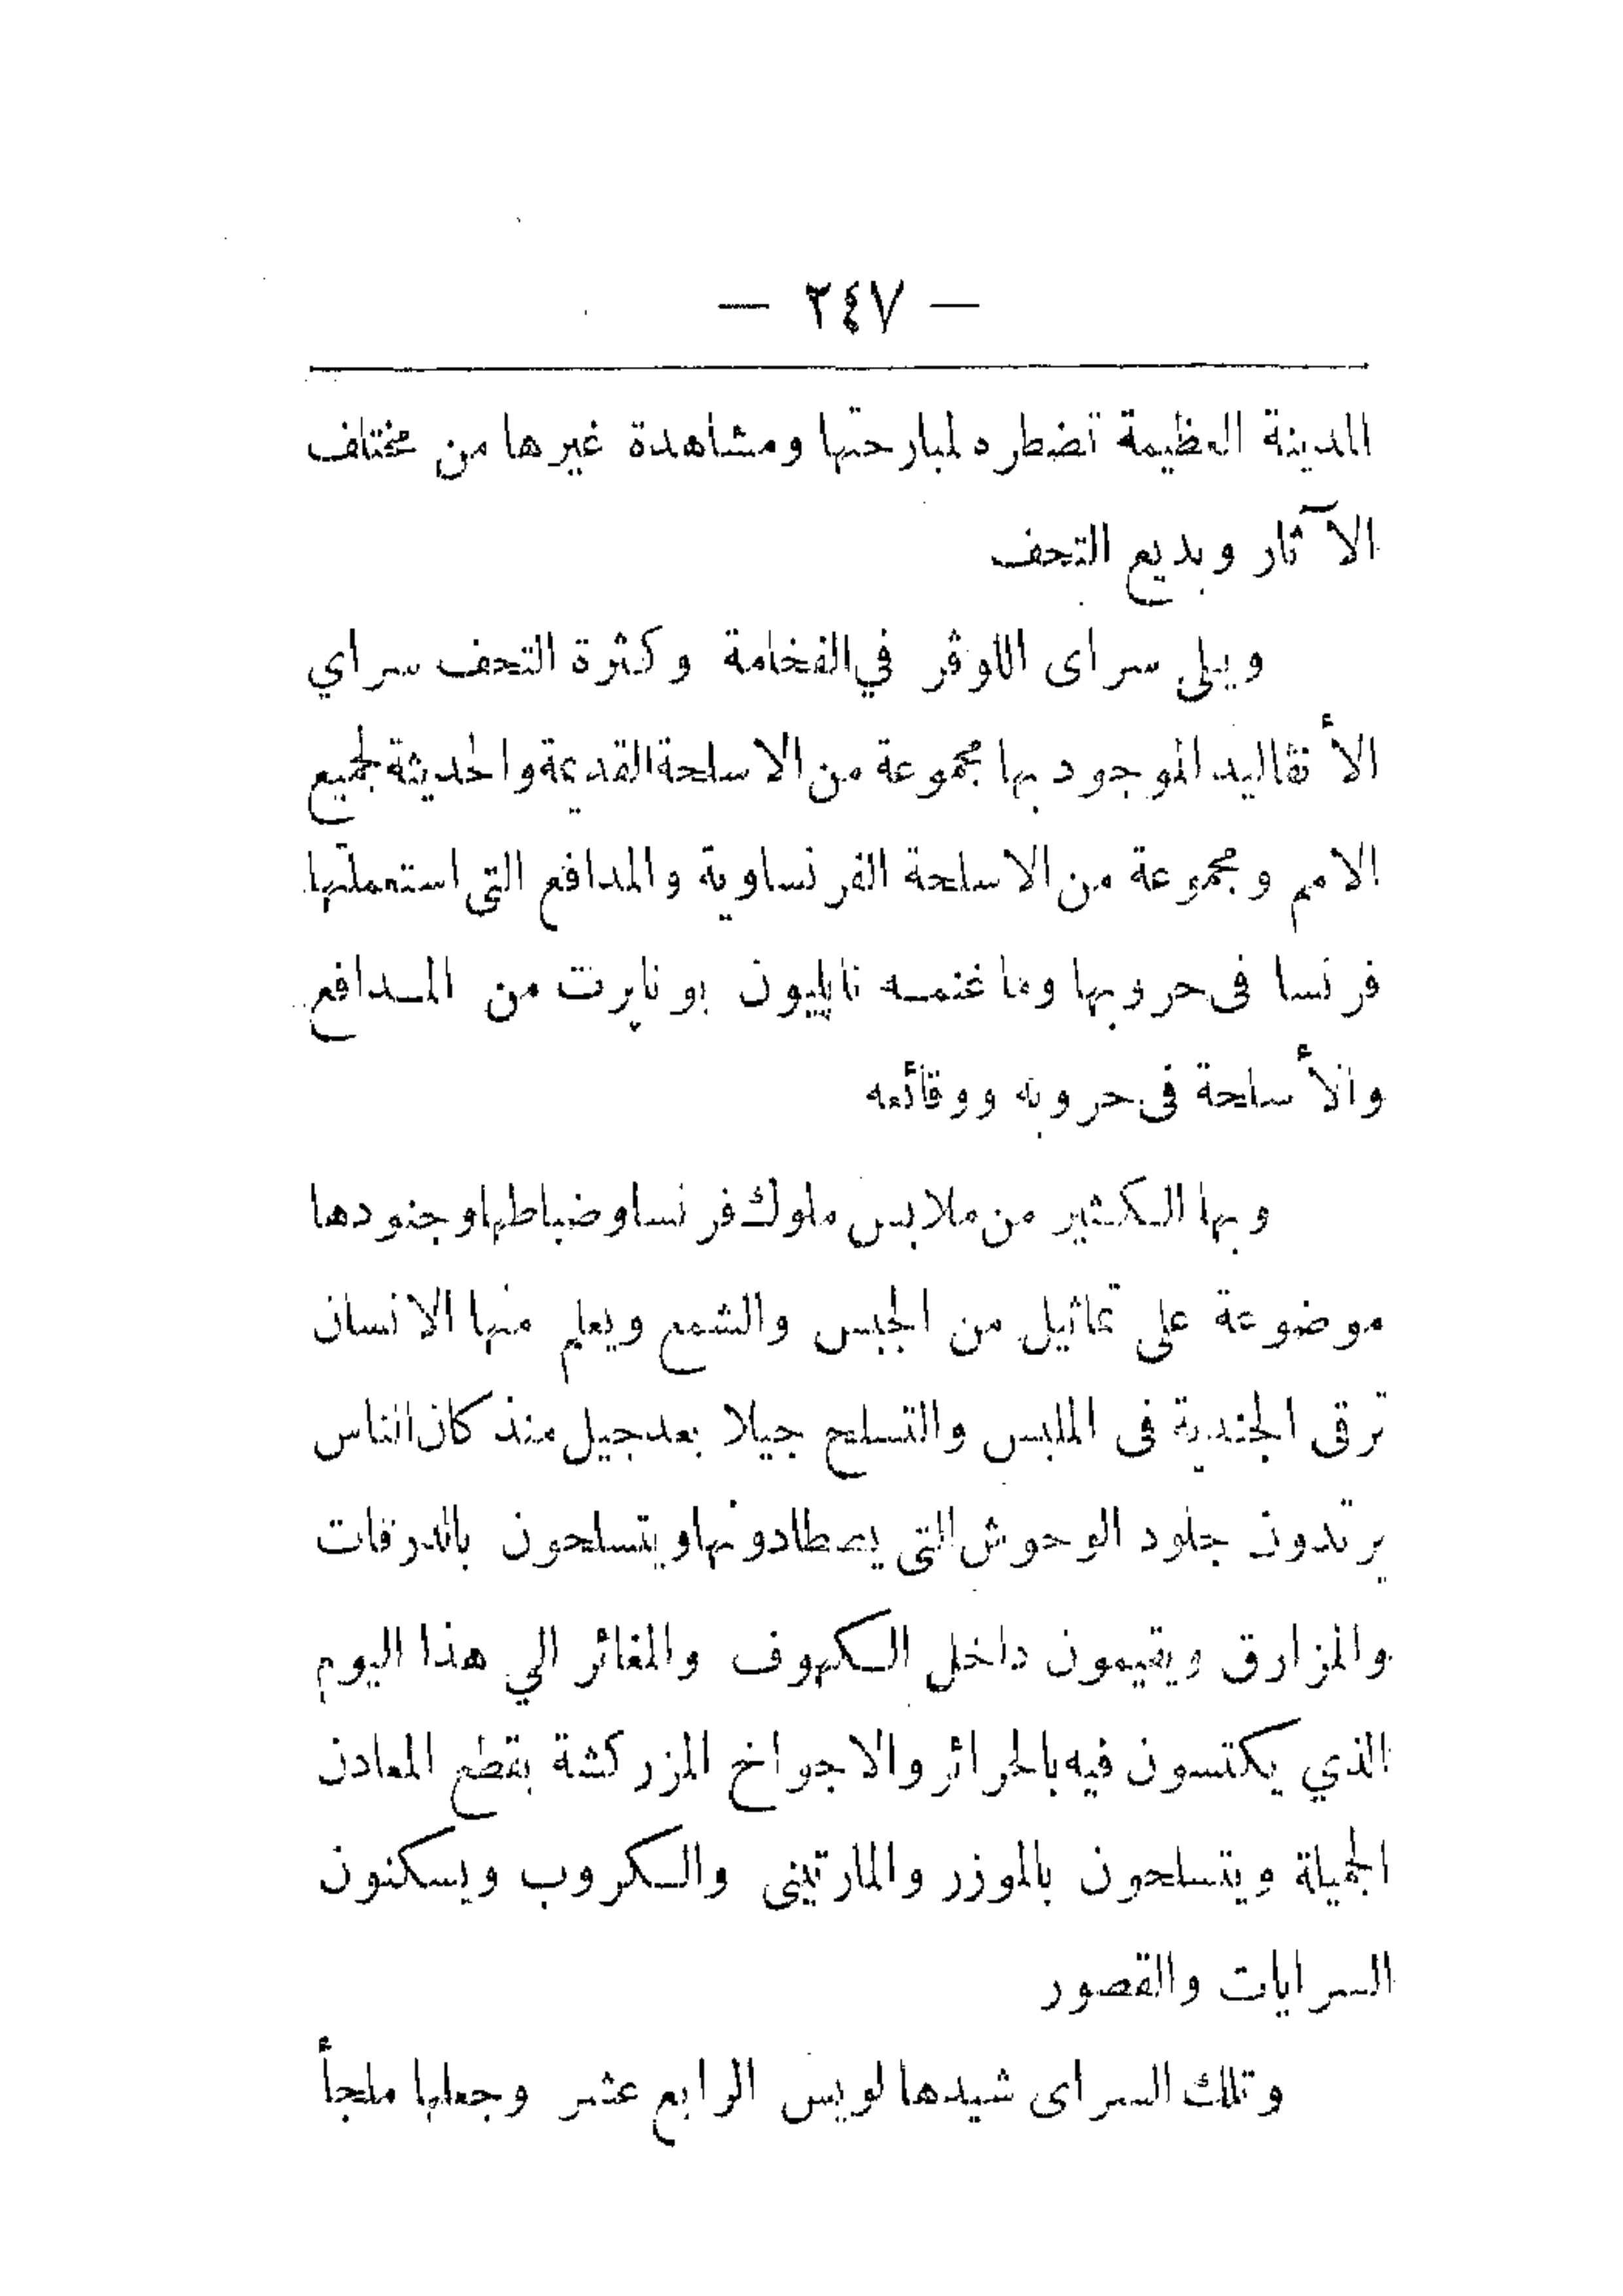 — ٢٤٧ —
المدينة العظيمة تضطره لمبارحتها ومشاهدة غيرها من مختلف
الآثار وبديع التحف
ويلى سراى اللوڤر في الفخامة وكثرة التحف سراي
الأنقاليد الموجود بها مجموعة من الاسلحة القديمة والحديثة لجميع
الامم ومجموعة من الاسلحة الفرنساوية والمدافع التى استعملتها
فرنسا فى حروبها وما غنمه ناپليون بونابرت من المدافع
والأسلحة فى حروبه ووقائعه
وبها الكثير من ملابس ملوك فرنسا وضباطها وجنودها
موضوعة على تماثيل من الجبس والشمع ويعلم منها الانسان
ترقى الجندية فى الملبس والتسلح جيلا بعد جيل منذ كان الناس
يرتدون جلود الوحوش التى يصطادونها ويتسلحون بالدرقات
والمزارق ويقيمون داخل الكهوف والمغائر الي هذا اليوم
الذي يكتسون فيه بالحرائر والاجواخ المزركشة بقطع المعادن
الجميلة ويتسلحون بالموزر والمارتينى والكروب ويسكنون
السرايات والقصور
وتلك السراى شيدها لويس الرابع عشر وجعلها ملجأ